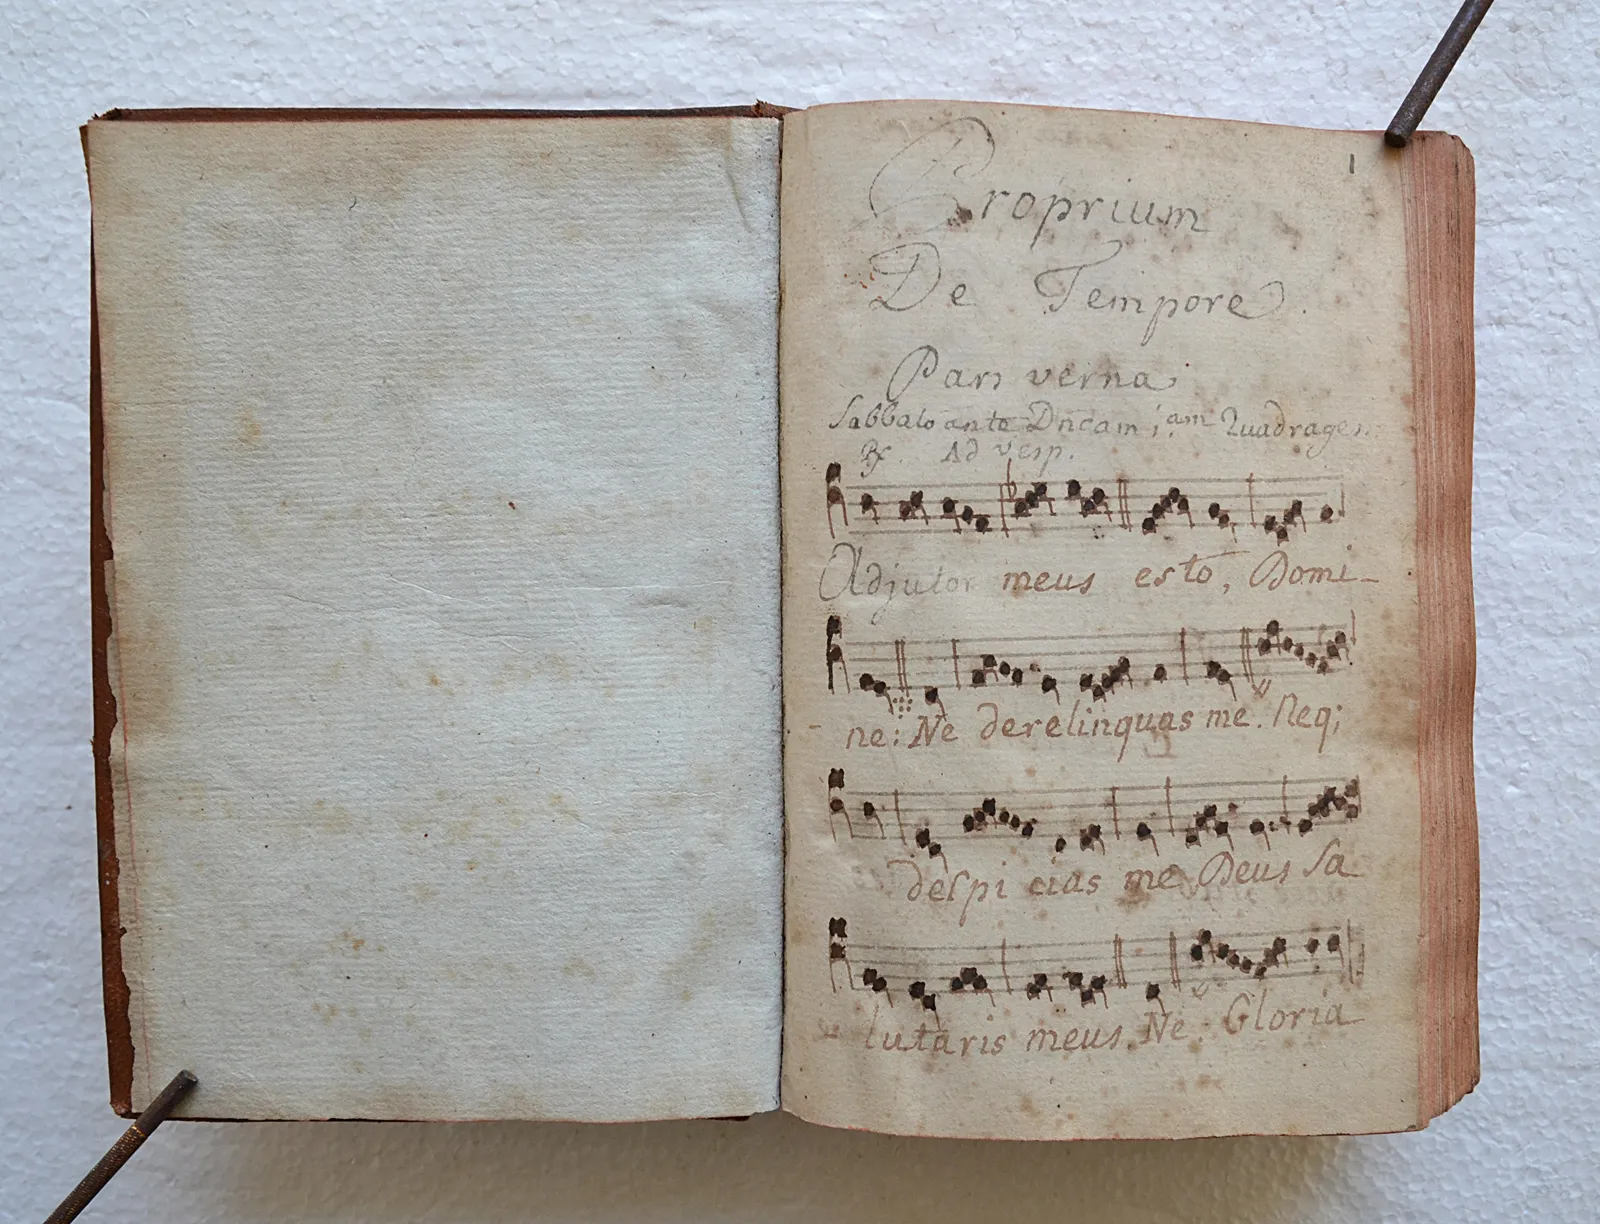 1
Proprium
De Tempore.
Pars verna.
Sabbato ante Dncam 1.am Quadrages.
℟. Ad vesp.
Adjutor meus esto, Domi-
- ne: Ne derelinquas me. Neq;
despi cias me Deus Sa
- lutaris meus. Ne. Gloria